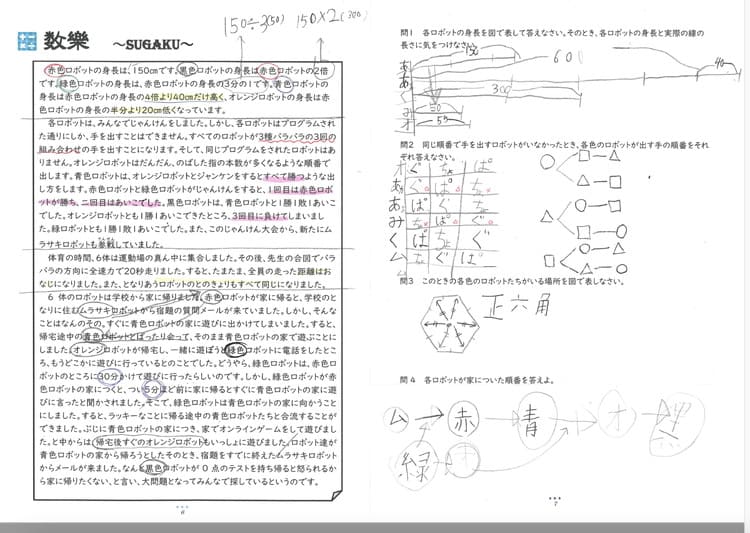 150÷3(50) 150×2(300)
数樂 ～SUGAKU～
赤色ロボットの身長は、150cmです。黒色ロボットの身長は赤色ロボットの2倍
です。緑色ロボットの身長は、赤色ロボットの身長の3分の1です。青色ロボット
の身長は赤色ロボットの身長の4倍より40cmだけ高く、オレンジロボットの身長は赤
色ロボットの身長の半分より20cm低くなっています。
各ロボットは、みんなでじゃんけんをしました。しかし、各ロボットはプログラムされ
た通りにしか、手を出すことはできません。すべてのロボットが3種バラバラの3回の
組み合わせの手を出すことになります。そして、同じプログラムをされたロボットはあ
りません。オレンジロボットはだんだん、のばした指の本数が多くなるような順番で
出します。青色ロボットは、オレンジロボットとジャンケンをするとすべて勝つような出
し方をします。赤色ロボットと緑色ロボットがじゃんけんをすると、1回目は赤色ロボッ
トが勝ち、二回目はあいこでした。黒色ロボットは、青色ロボットと1勝1敗1あいこ
でした。オレンジロボットとも1勝1あいこできたところ、3回目に負けてしまいまし
た。緑ロボットとも1勝1敗1あいこでした。また、このじゃんけん大会から、新たにム
ラサキロボットも参戦していました。
体育の時間、6体は運動場の真ん中に集合しました。その後、先生の合図でバラ
バラの方向に全速力で20秒走りました。すると、たまたま、全員の走った距離はお
なじになりました。また、となりあうロボットのとのきょりもすべて同じになりました。
6 体のロボットは学校から家に帰りました。赤色ロボットが家に帰ると、学校のと
なりに住むムラサキロボットから宿題の質問メールが来ていました。しかし、そんな
ことはなんのその。すぐに青色ロボットの家に遊びに出かけてしまいました。すると、
帰宅途中の青色ロボットとばったり会って、そのまま青色ロボットの家で遊ぶことに
しました。オレンジロボットが帰宅し、一緒に遊ぼうと緑色ロボットに電話をしたとこ
ろ、もうどこかに遊びに行っているとのことでした。どうやら、緑ロボットは、赤色ロ
ボットのところに30分かけて遊びに行ったらしいのです。しかし、緑ロボットが赤
色ロボットの家につくと、つい5分ほど前に家に帰るとすぐに青色ロボットの家に遊
びに言ったと聞かされました。そこで、緑ロボットは青色ロボットの家に向かうこと
にしました。すると、ラッキーなことに帰る途中の青色ロボットたちと合流することが
できました。ぶじに青色ロボットの家につき、家でオンラインゲームをして遊びまし
た。と中からは、帰宅後すぐのオレンジロボットもいっしょに遊びました。ロボット達が
青色ロボットの家から帰ろうとしたそのとき、宿題をすでに終えたムラサキロボット
からメールが来ました。なんと黒色ロボットが 0 点のテストを持ち帰ると怒られるか
ら家に帰りたくない、と言い、大問題となってみんなで探しているというのです。
6
問1 各ロボットの身長を図で表して答えなさい。そのとき、各ロボットの身長と実際の線の
長さに気をつけなさい。
あ 150
あ 600 40
く 300
み 50
オ 55
問2 同じ順番で手を出すロボットがいなかったとき、各色のロボットが出す手の順番をそれ
ぞれ答えなさい。
オ ぐ ちょ ぱ
あ ぐ ぱ ちょ
あ ぱ ぐ ちょ
み ちょ ぱ ぐ
く ぱ ちょ ぐ
ム ちょ ぐ ぱ
問3 このときの各色のロボットたちがいる場所を図で表しなさい。
正六角
問4 各ロボットが家についた順番を答えよ。
ム→赤→青→オ→
緑
7